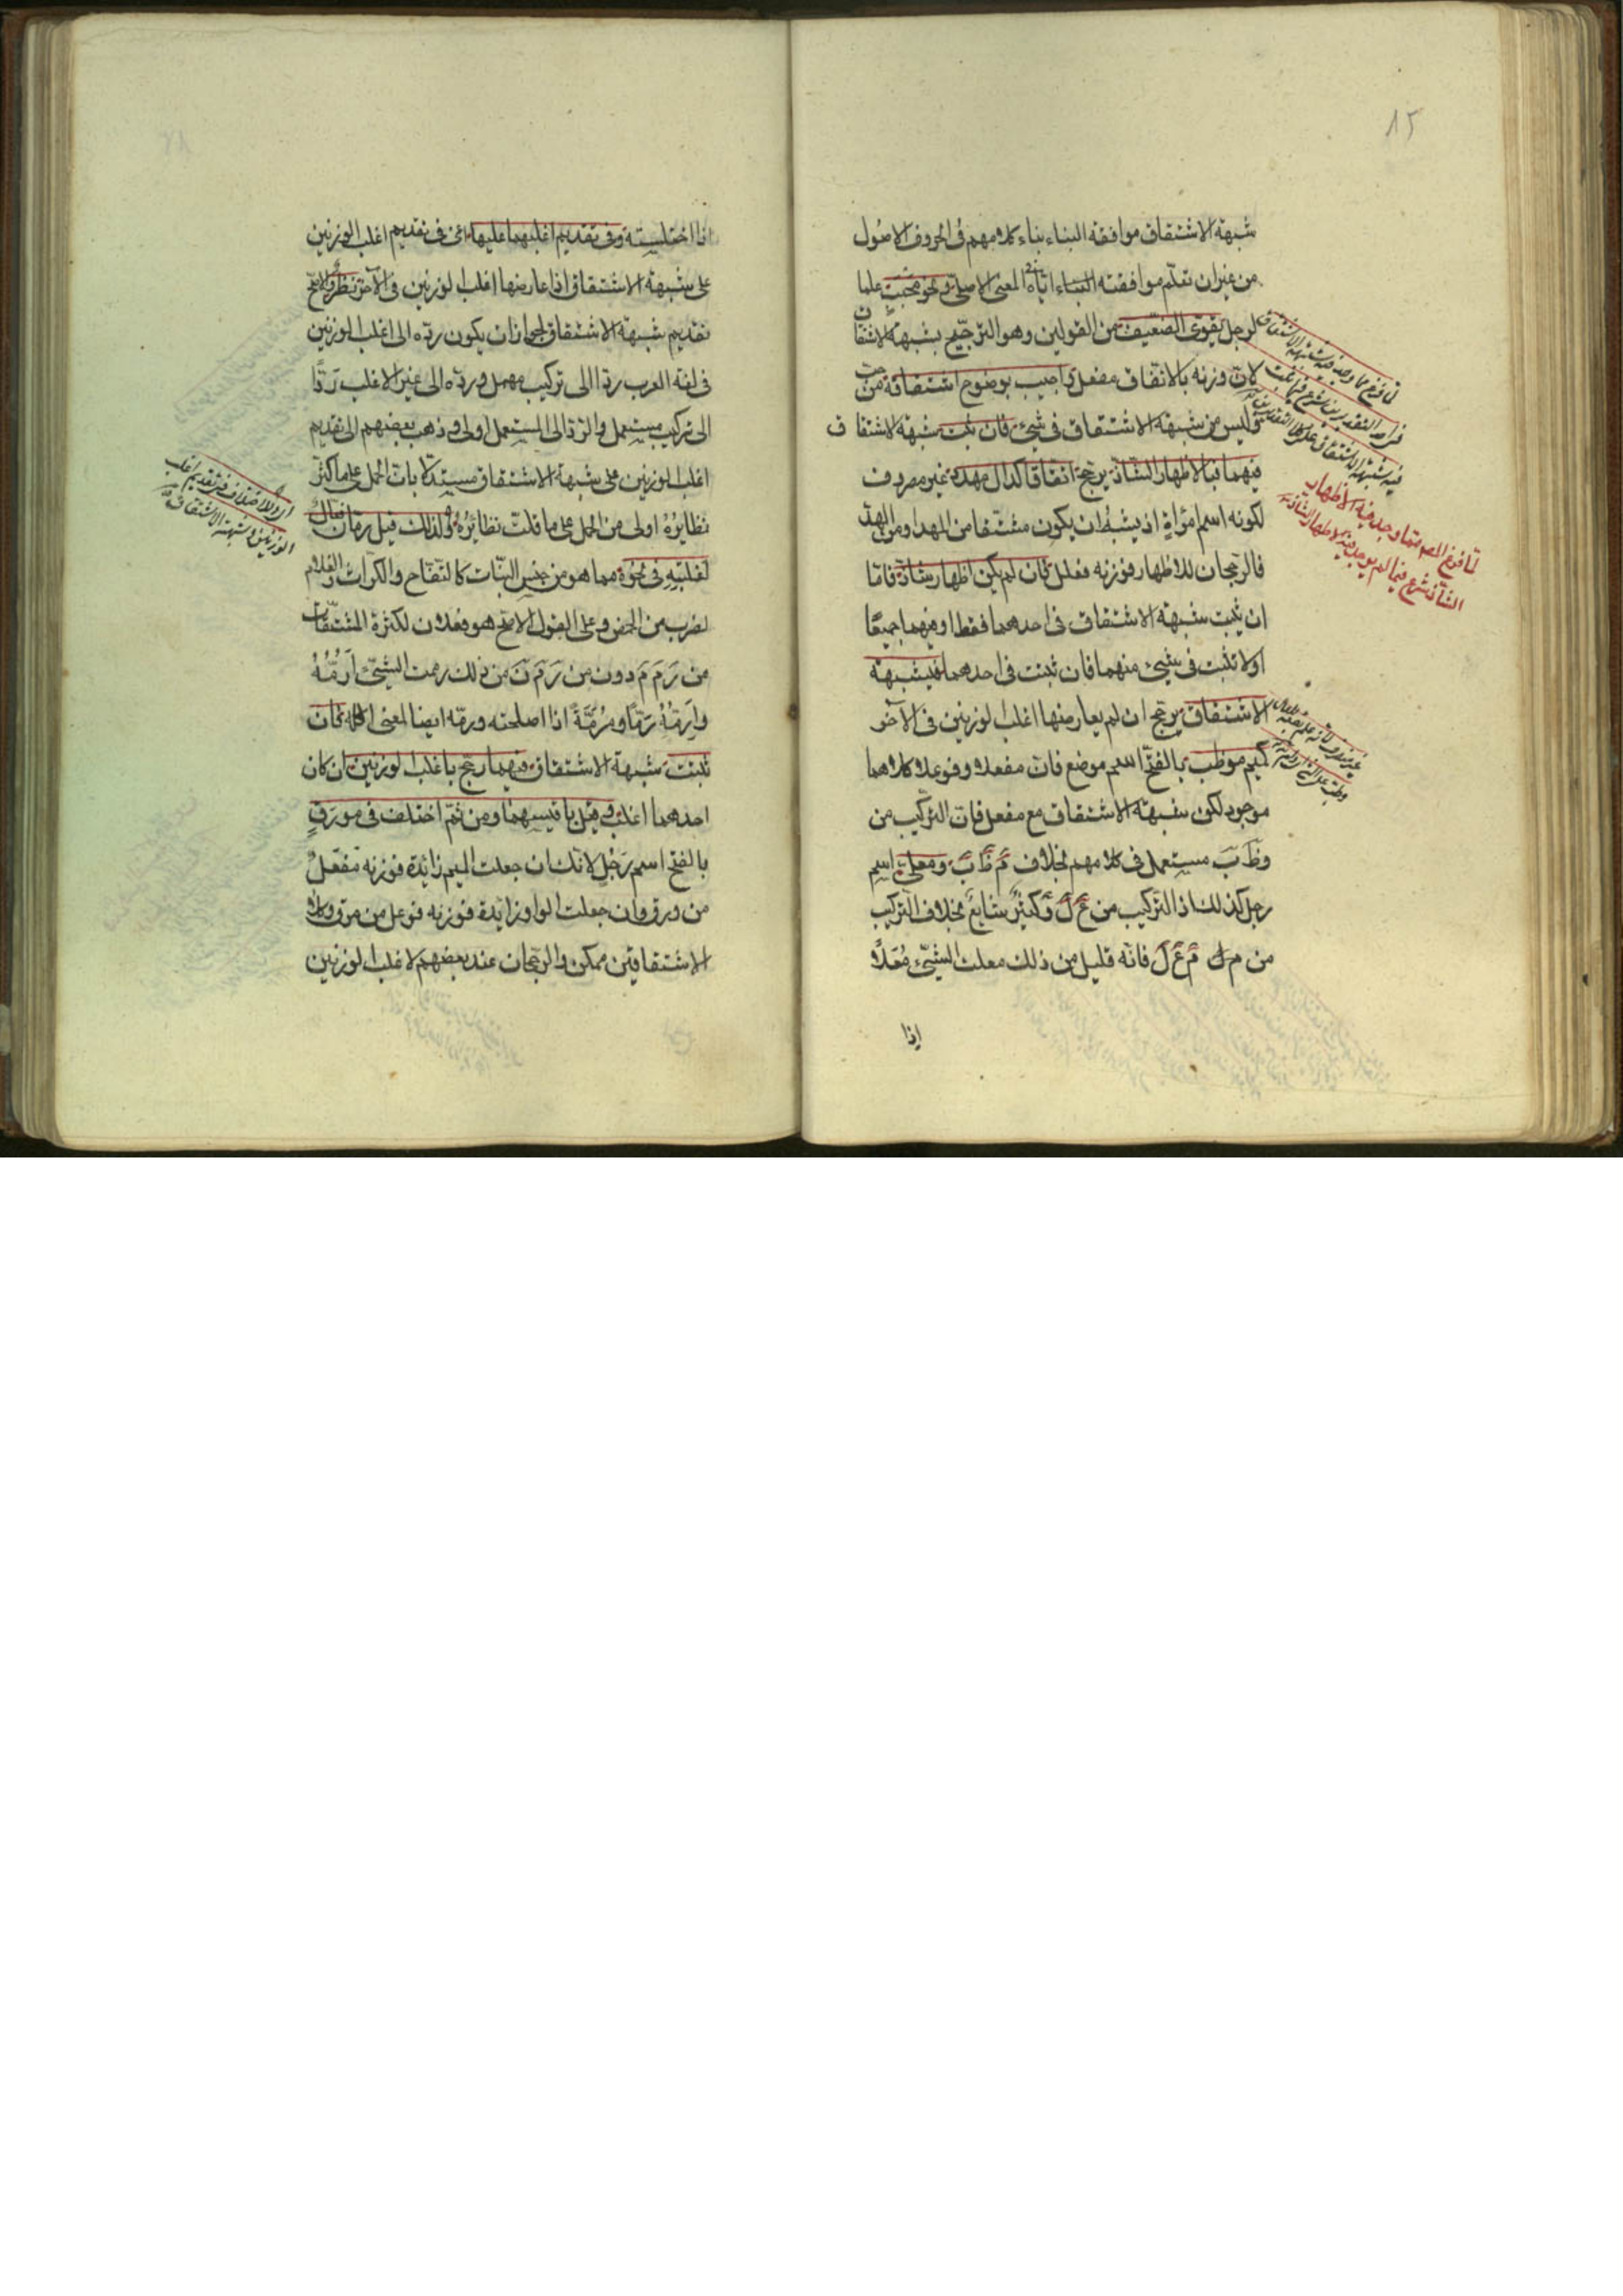 ١٢
شبهة الاشتقاق موافقة البناء بناء كلامهم فى الحروف الاصول
من غيران تعلم موافقته البناء اياه المعنى الاصلى ونحو محبب علما
لرجل يقوى الضعيف من القولين وهو الترجيح بشبهة الاشتقاق
لان وزنه بالاتفاق مفعل واجيب بوضوح اشتقاقه من حب
وليس من شبهة الاشتقاق فى شىء فان ثبت شبهة الاشتقاق
فيهما فبالاظهار الشاذ يرجح اتفاقا كدال مهدد غير مصروف
لكونه اسم امرأة اذ يشبه ان يكون مشتقا من المهد او من الهد
فالرجحان للاظهار فوزنه فعلل فان لم يكن اظهار شاذ فاما
ان يثبت شبهة الاشتقاق فى احدهما فقط او فيهما جميعا
اولا تثبت فى شىء منهما فان ثبتت فى احدهما فبشبهة
الاشتقاق يرجح ان لم يعارضها اغلب الوزنين فى الآخر
كميم موظب بالفتح اسم موضع فان مفعلا وفوعلا كلاهما
موجود لكن شبهة الاشتقاق مع مفعل فان التركيب من
وظَبَ مستعمل فى كلامهم بخلاف مَ ظَ بَ ومعلى اسم
رجل كذلك اذ التركيب من ع ل و كثير شايع بخلاف التركيب
من م ل مَ عَ لَ فانه قليل من ذلك معلت الشىء مَعْلًا
اذا
لما فرغ المص مما وجد فيه الاظهار
الشاذ شرع فيما لم يوجد فيه الاظهار الشاذ
اذا اختلسته وفى تقديم اغلبهما عليها اى فى تقديم اغلب الوزنين
على شبهة الاشتقاق اذا عارضها اغلب الوزنين فى الآخر نظر والاصح
تقديم شبهة الاشتقاق لجواز ان يكون رده الى اغلب الوزنين
فى لغة العرب ردا الى تركيب مهمل ورده الى غير الاغلب ردًّا
الى تركيب مستعمل والرد الى المستعمل اولى وذهب بعضهم الى تقديم
اغلب الوزنين على شبهة الاشتقاق مستدلا بان الحمل على ما كثر
نظايرُهُ اولى من الحمل على ما قلت نظايرُهُ ولذلك قيل رمان فعال
لغلبته فى نحوه مما هو من جنس النبات كالتفاح والكراث والقلام
لضرب من الحمض وعلى القول الاصح هو فعلان لكثرة المشتقات
من رَمَ مَ دون من رَ مَ نَ من ذلك رممت الشىء اَرُمُّهُ
واَرِمّهُ رَمًّا ومَرَمَّةً اذا اصلحته ورمّه ايضا بمعنى اكله فان
ثبتت شبهة الاشتقاق فيهما رجح باغلب الوزنين ان كان
احدهما اغلب وقيل باقيسهما ومن ثم اختلف فى مورَقٍ
بالفتح اسم رَجُلٍ لانك ان جعلت الميم زائدة فوزنه مَفعَلٌ
من ورق وان جعلت الواو زايدة فوزنه فوعل من مرق وكلا
الاشتقاقين ممكن والرجحان عند بعضهم لاغلب الوزنين
اراد الاختلاف فى تقديم اغلب
الوزنين وشبهة الاشتقاق